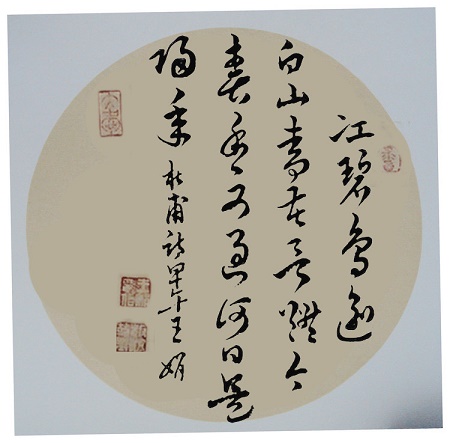 江碧鸟逾
白山青花欲燃今
春看又过何日是
归年 杜甫诗 甲午 王娟